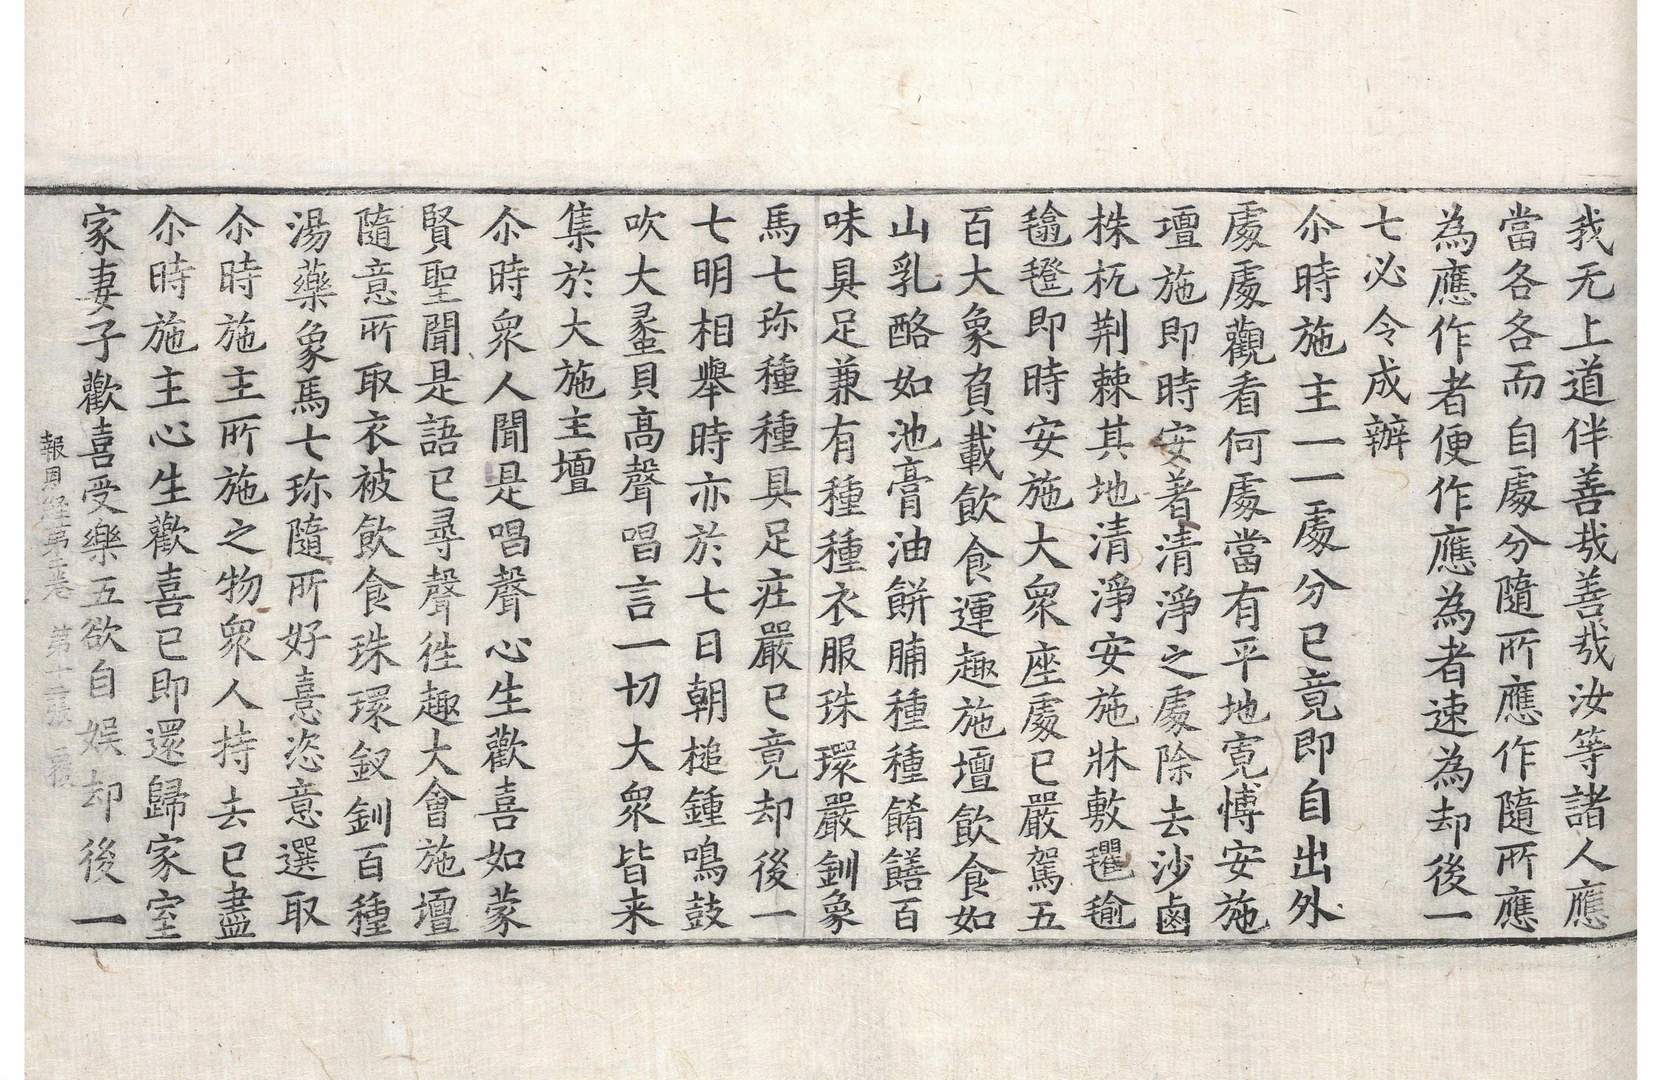 我无上道伴善哉善哉汝等諸人應
當各各而自處分隨所應作隨所應
為應作者便作應為者速為却後一
七必令成辦
尒時施主一一處分已竟即自出外
處處觀看何處當有平地寬愽安施
壇施即時安著清淨之處除去沙鹵
株杌荆棘其地清淨安施牀敷氍毹
毾㲪即時安施大衆座處已嚴駕五
百大象負載飲食運趣施壇飲食如
山乳酪如池膏油餅脯種種餚饍百
味具足兼有種種衣服珠環嚴釧象
馬七珎種種具足莊嚴已竟却後一
七明相舉時亦於七日朝槌鍾鳴鼓
吹大蠡貝高聲唱言一切大衆皆来
集於大施主壇
尒時衆人聞是唱聲心生歡喜如蒙
賢聖聞是語已尋聲徃趣大會施壇
隨意所取衣被飲食珠環釵釧百種
湯藥象馬七珎隨所好憙恣意選取
尒時施主所施之物衆人持去已盡
尒時施主心生歡喜已即還歸家室
家妻子歡喜受樂五欲自娱却後一
報恩經第 卷 第十二張 覆